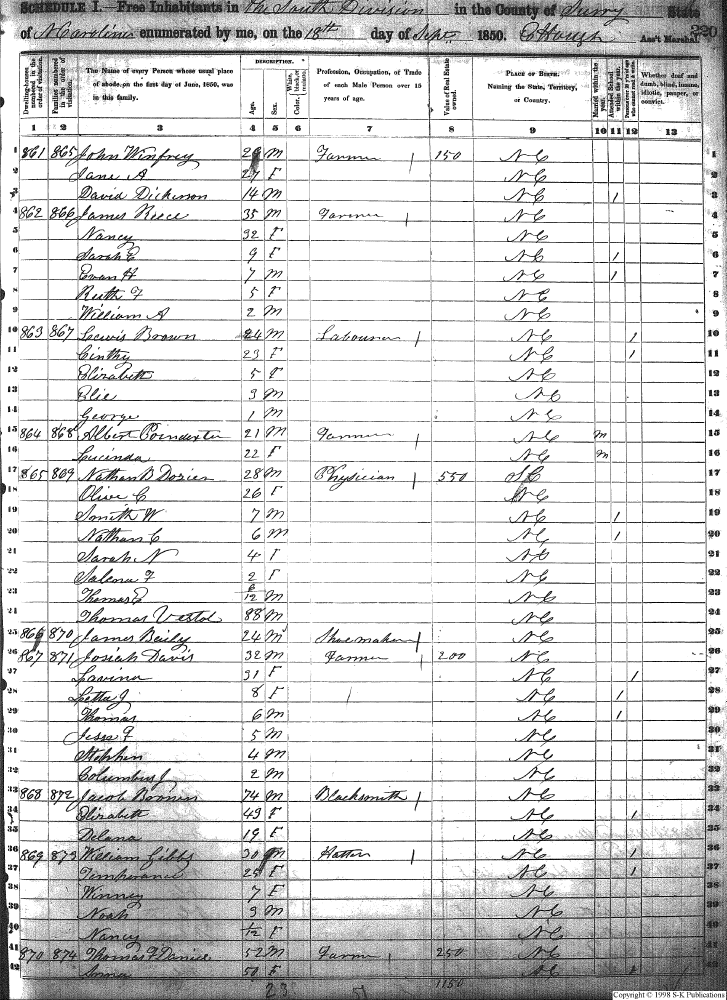 SCHEDULE I.—Free Inhabitants in the South Division in the County of Surry State
of N Carolina enumerated by me, on the 18th day of Sept 1850. C Hough Ass't Marshal. 220
Dwelling-houses numbered in the order of visitation.
Families numbered in the order of visitation.
The Name of every Person whose usual place of abode on the first day of June, 1850, was in this family.
DESCRIPTION.
Age.
Sex.
White, black, or mulatto. Color,
Profession, Occupation, or Trade of each Male Person over 15 years of age.
Value of Real Estate owned.
PLACE OF BIRTH. Naming the State, Territory, or Country.
Married within the year.
Attended School within the year.
Persons over 20 y'rs of age who cannot read & write.
Whether deaf and dumb, blind, insane, idiotic, pauper, or convict.
1 2 3 4 5 6 7 8 9 10 11 12 13
1 861 865 John Winfrey 26 M Farmer 150 NC 1
2 Jane A 27 F NC 2
3 David Dickinson 14 M NC / 3
4 862 866 James Reece 35 M Farmer NC 4
5 Nancy 32 F NC 5
6 Sarah E 9 F NC / 6
7 Evan H 7 M NC / 7
8 Ruth F 5 F NC 8
9 William A 2 M NC 9
10 863 867 Lewis Brown 24 M Labourer NC / 10
11 Cinthy 23 F NC / 11
12 Elizabeth 5 F NC 12
13 Elie 3 M NC 13
14 George 1 M NC 14
15 864 868 Albert Poindexter 21 M Farmer NC M 15
16 Lucinda 22 F NC M 16
17 865 869 Nathan B Dozier 28 M Physician 550 SC 17
18 Olive C 26 F NC 18
19 Smith W 7 M NC / 19
20 Nathan C 6 M NC / 20
21 Sarah N 4 F NC 21
22 Salena F 2 F NC 22
23 Thomas E 6/12 M NC 23
24 Thomas Vestal 88 M NC 24
25 866 870 James Baily 24 M Shoemaker NC 25
26 867 871 Josiah Davis 32 M Farmer 200 NC 26
27 Lavina 31 F NC / 27
28 Letta J 8 F NC / 28
29 Thomas 6 M NC / 29
30 Jesse F 5 M NC 30
31 Stephen 4 M NC 31
32 Columbus J 2 M NC 32
33 868 872 Jacob Brown 74 M Blacksmith NC 33
34 Elizabeth 49 F NC / 34
35 Delana 19 F NC 35
36 869 873 William Gibbs 30 M Hatter NC / 36
37 Temperance 25 F NC / 37
38 Winney 7 F NC 38
39 Noah 3 M NC 39
40 Nancy 1/12 F NC 40
41 870 874 Thomas F Daniel 52 M Farmer 250 NC 41
42 Anna 50 F NC / 42
23 1150
Copyright © 1998 S-K Publications